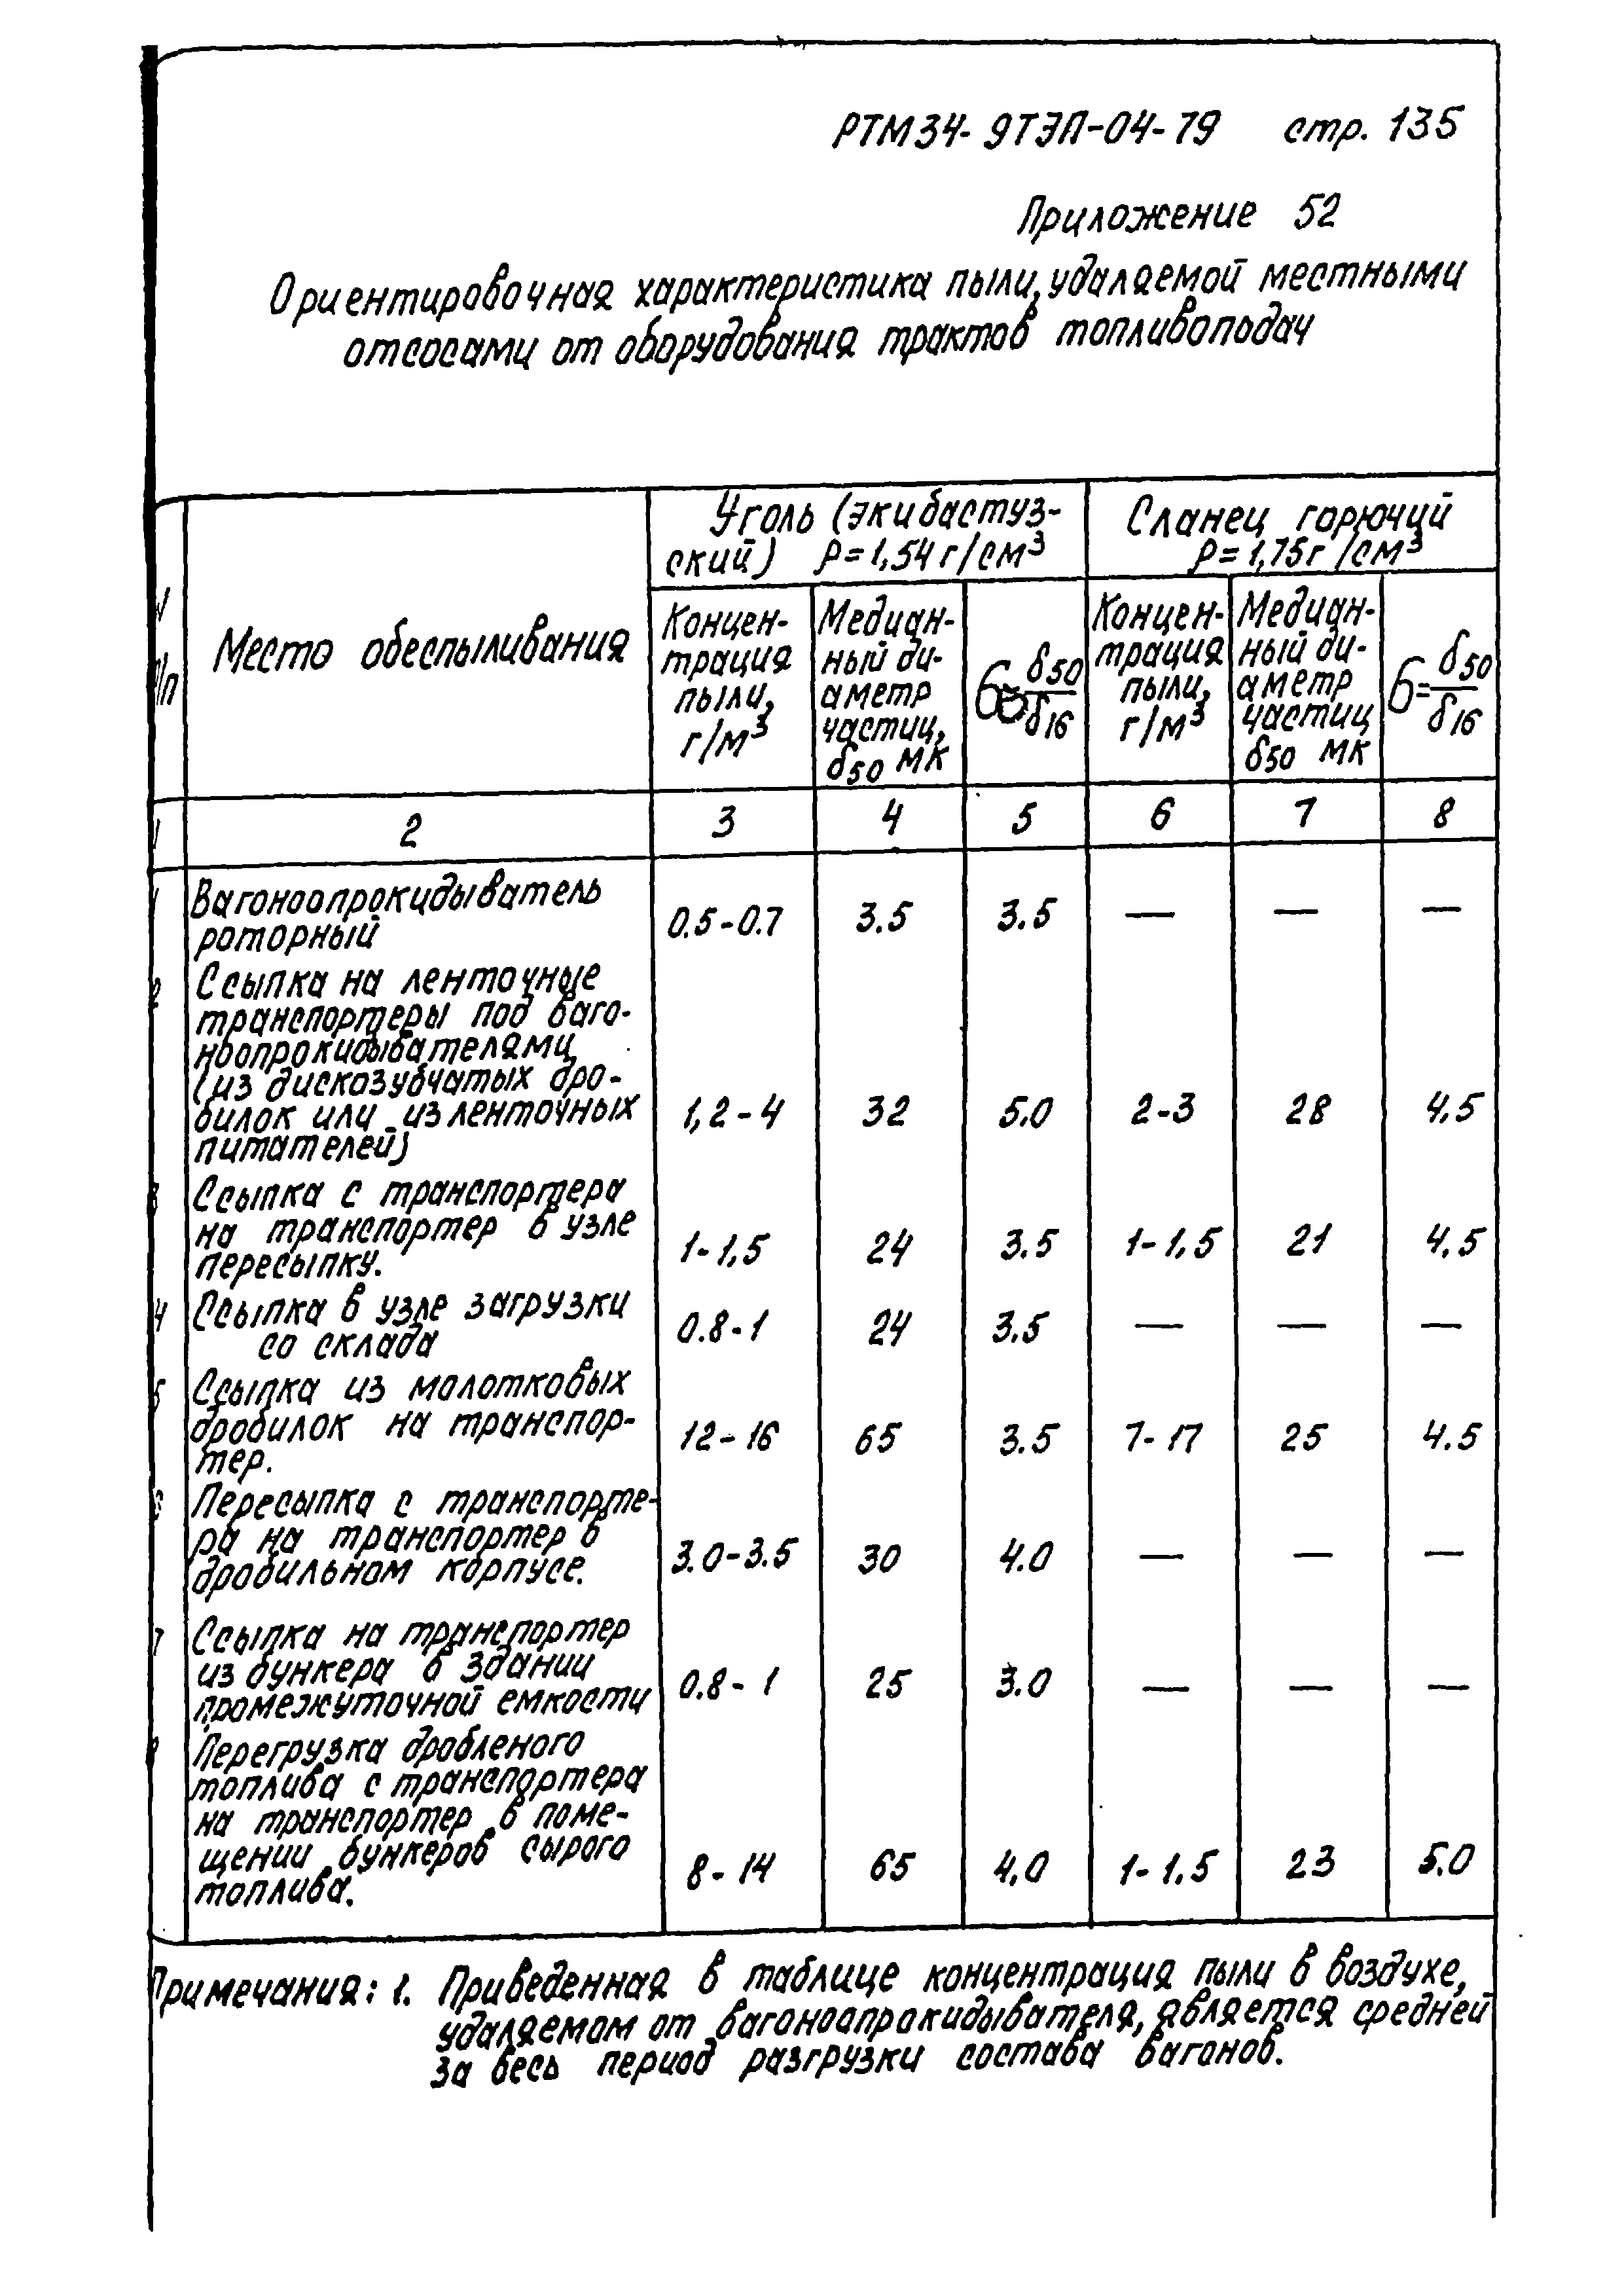 РТМ34-9ТЭП-04-79 стр. 135
Приложение 52
Ориентировочная характеристика пыли, удаляемой местными
отсосами от оборудования трактов топливоподач
Место обеспыливания
Уголь (экибастуз-
ский) ρ=1,54 г/см³
Сланец горючий
ρ=1,75г/см³
Концен-
трация
пыли,
г/м³
Медиан-
ный ди-
аметр
частиц,
δ50 мк
σ=δ50/δ16
Концен-
трация
пыли,
г/м³
Медиан-
ный ди-
аметр
частиц
δ50 мк
σ=δ50/δ16
1 2 3 4 5 6 7 8
1 Вагоноопрокидыватель
роторный 0.5-0.7 3.5 3.5 — — —
2 Ссыпка на ленточные
транспортеры под ваго-
ноопрокидывателями
(из дискозубчатых дро-
билок или из ленточных 1,2-4 32 5.0 2-3 28 4,5
питателей)
3 Ссыпка с транспортера
на транспортер в узле 1-1,5 24 3.5 1-1,5 21 4,5
пересыпку.
4 Ссыпка в узле загрузки 0.8-1 24 3.5 — — —
со склада
5 Ссыпка из молотковых
дробилок на транспор- 12-16 65 3.5 7-17 25 4.5
тер.
6 Пересыпка с транспорте-
ра на транспортер в 3.0-3.5 30 4.0 — — —
дробильном корпусе.
7 Ссыпка на транспортер
из бункера в здании 0.8-1 25 3.0 — — —
промежуточной емкости
8 Перегрузка дробленого
топлива с транспортера
на транспортер в поме-
щении бункеров сырого 8-14 65 4,0 1-1.5 23 5.0
топлива.
Примечания: 1. Приведенная в таблице концентрация пыли в воздухе,
удаляемом от вагоноопрокидывателя, является средней
за весь период разгрузки состава вагонов.